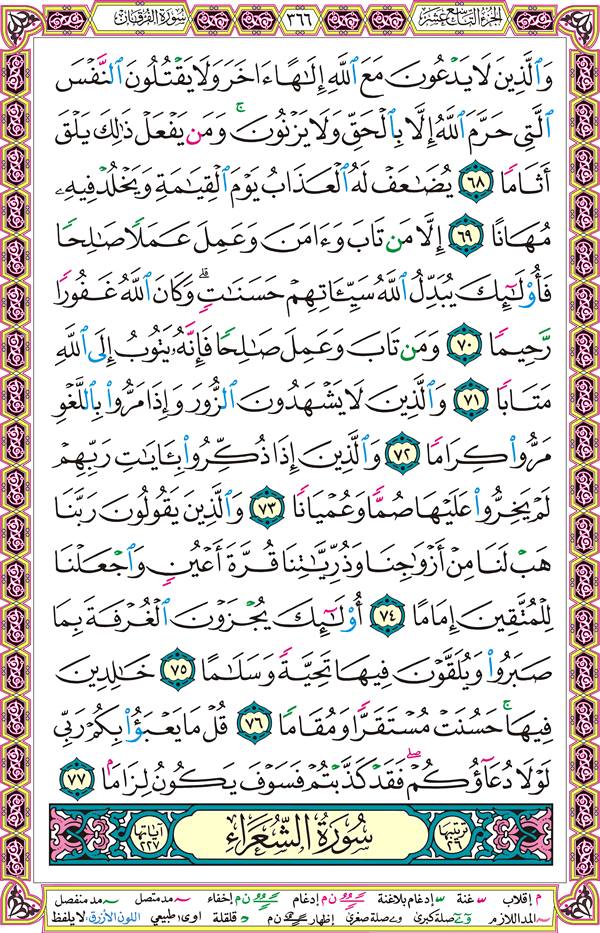 الجزء التاسع عشر ٣٦٦ سورة الفرقان
وَٱلَّذِينَ لَا يَدْعُونَ مَعَ ٱللَّهِ إِلَٰهًا ءَاخَرَ وَلَا يَقْتُلُونَ ٱلنَّفْسَ
ٱلَّتِى حَرَّمَ ٱللَّهُ إِلَّا بِٱلْحَقِّ وَلَا يَزْنُونَ ۚ وَمَن يَفْعَلْ ذَٰلِكَ يَلْقَ
أَثَامًا ٦٨ يُضَٰعَفْ لَهُ ٱلْعَذَابُ يَوْمَ ٱلْقِيَٰمَةِ وَيَخْلُدْ فِيهِۦ
مُهَانًا ٦٩ إِلَّا مَن تَابَ وَءَامَنَ وَعَمِلَ عَمَلًا صَٰلِحًا
فَأُو۟لَٰٓئِكَ يُبَدِّلُ ٱللَّهُ سَيِّـَٔاتِهِمْ حَسَنَٰتٍ ۗ وَكَانَ ٱللَّهُ غَفُورًا
رَّحِيمًا ٧٠ وَمَن تَابَ وَعَمِلَ صَٰلِحًا فَإِنَّهُۥ يَتُوبُ إِلَى ٱللَّهِ
مَتَابًا ٧١ وَٱلَّذِينَ لَا يَشْهَدُونَ ٱلزُّورَ وَإِذَا مَرُّوا۟ بِٱللَّغْوِ
مَرُّوا۟ كِرَامًا ٧٢ وَٱلَّذِينَ إِذَا ذُكِّرُوا۟ بِـَٔايَٰتِ رَبِّهِمْ
لَمْ يَخِرُّوا۟ عَلَيْهَا صُمًّا وَعُمْيَانًا ٧٣ وَٱلَّذِينَ يَقُولُونَ رَبَّنَا
هَبْ لَنَا مِنْ أَزْوَٰجِنَا وَذُرِّيَّٰتِنَا قُرَّةَ أَعْيُنٍ وَٱجْعَلْنَا
لِلْمُتَّقِينَ إِمَامًا ٧٤ أُو۟لَٰٓئِكَ يُجْزَوْنَ ٱلْغُرْفَةَ بِمَا
صَبَرُوا۟ وَيُلَقَّوْنَ فِيهَا تَحِيَّةً وَسَلَٰمًا ٧٥ خَٰلِدِينَ
فِيهَا ۚ حَسُنَتْ مُسْتَقَرًّا وَمُقَامًا ٧٦ قُلْ مَا يَعْبَؤُا۟ بِكُمْ رَبِّى
لَوْلَا دُعَآؤُكُمْ ۖ فَقَدْ كَذَّبْتُمْ فَسَوْفَ يَكُونُ لِزَامًۢا ٧٧
ترتيبها ٢٦ سُورَةُ الشُّعَرَاءِ آياتها ٢٢٧
م إقلاب غنة إدغام بلاغنة ن م إدغام ن م إخفاء مد متصل مد منفصل
المد اللازم صلة كبرى صلة صغرى إظهار ن م قلقلة اوى طبيعي اللون الأزرق: لا يلفظ